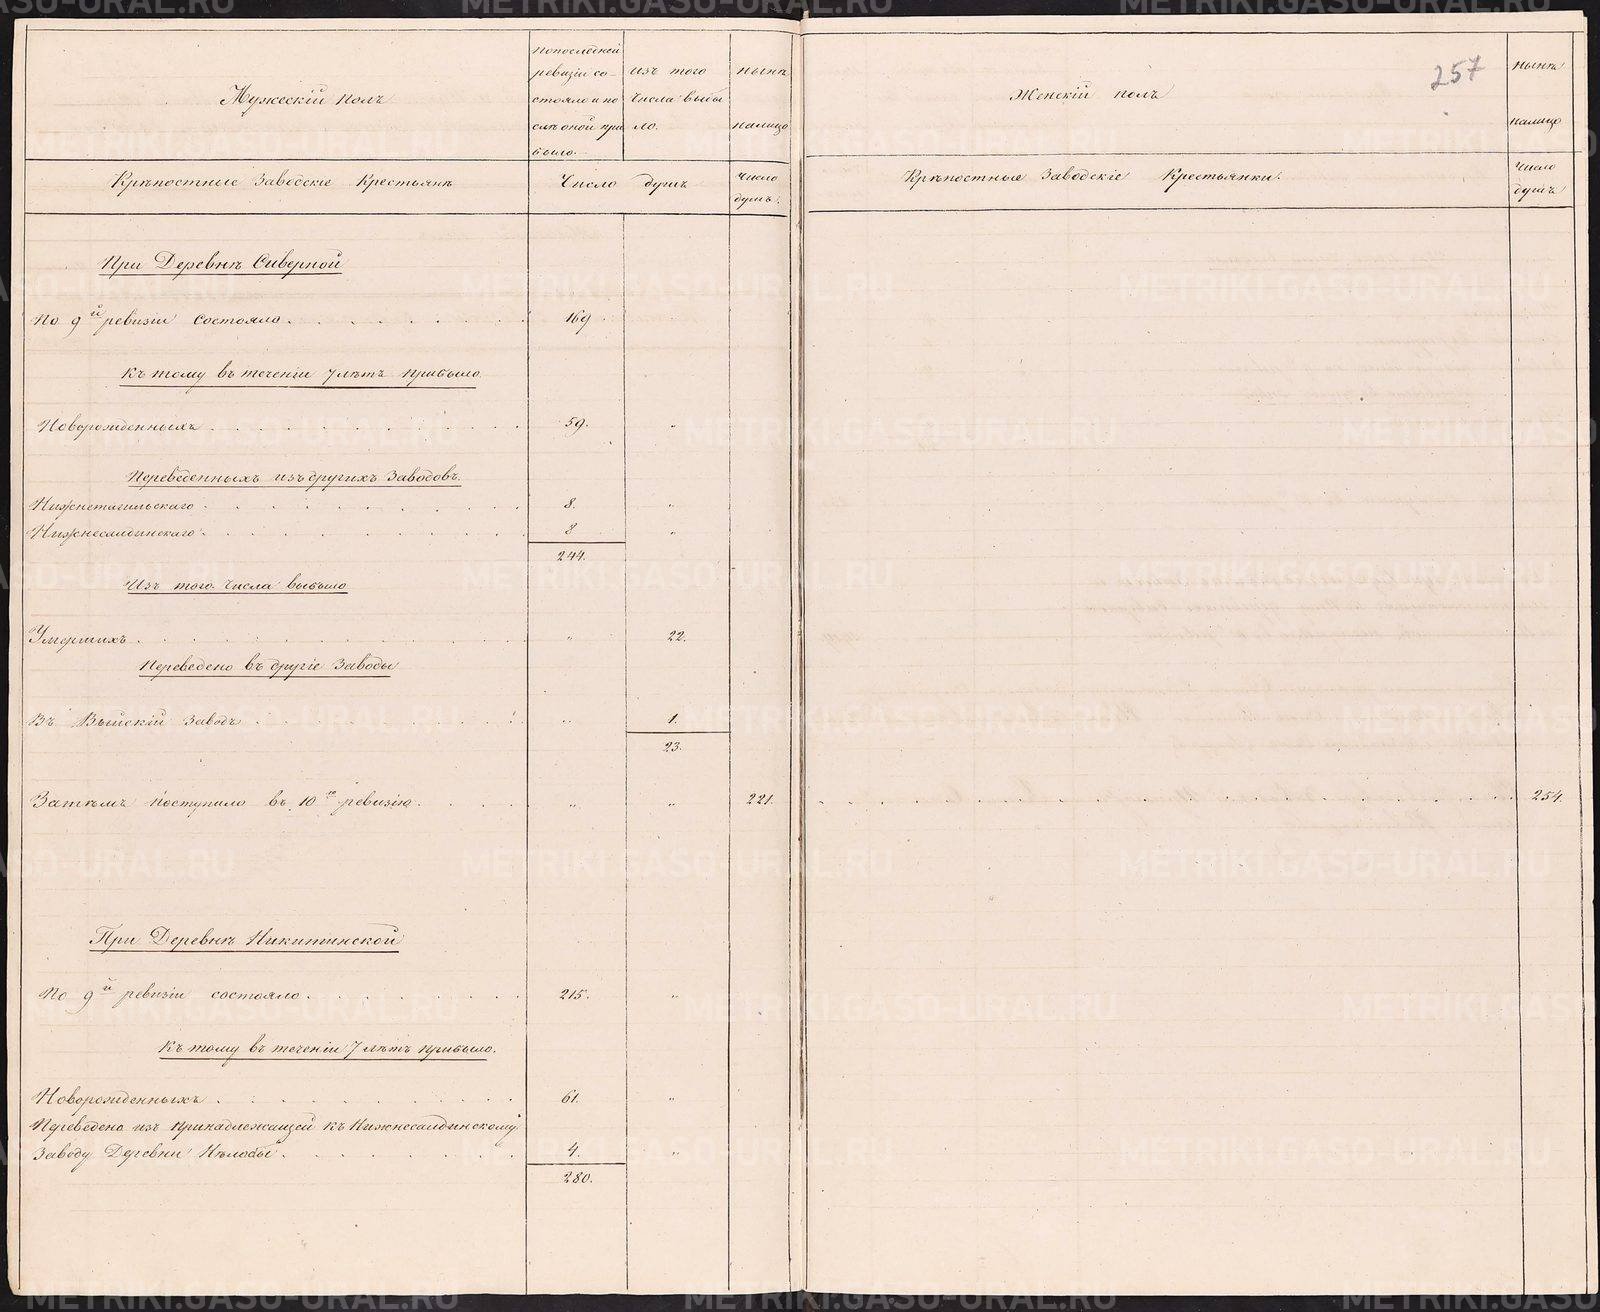 Мужескій полъ
По последней
ревизіи со-
стояло и по
слѣ оной при
было.
изъ того
числа выбы
ло.
нынѣ
налицо
Крѣпостные Заводскіе Крестьянѣ
Число душъ
Число
душъ.
При Деревнѣ Сиверной
По 9й ревизіи состояло 169
Къ тому въ теченіи 7 лѣтъ прибыло
Новорожденныхъ 59. "
Переведенныхъ изъ другихъ Заводовъ.
Нижнетагильскаго 8. "
Нижнесалдинскаго 8 "
244.
Изъ того числа выбыло
Умершихъ " 22.
Переведено въ другіе Заводы
Въ Выйскій Заводъ " 1.
23.
Затѣмъ поступило въ 10ю ревизію " " 221.
При Деревнѣ Никитинской
По 9й ревизіи состояло 215. "
Къ тому въ теченіи 7 лѣтъ прибыло.
Новорожденныхъ 61. "
Переведено изъ принадлежащей къ Нижнесалдинскому
Заводу Деревни Нѣлобы 4. "
280.
257
Женскій полъ
нынѣ
налицо
Крѣпостные Заводскіе Крестьянки.
Число
душъ
254.
METRIKI.GASO-URAL.RU